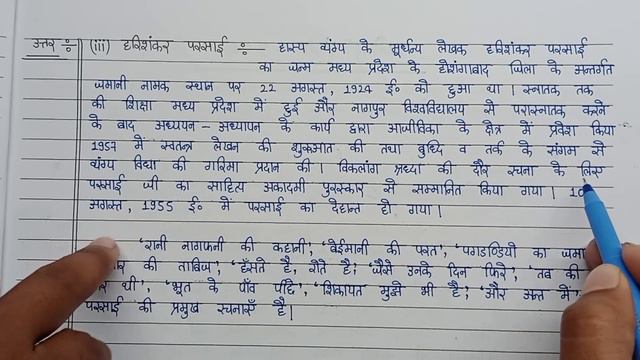 उत्तर ÷ (iii) हरिशंकर परसाई ÷ हास्य व्यंग्य के मूर्धन्य लेखक हरिशंकर परसाई
का जन्म मध्य प्रदेश के होशंगाबाद जिला के अन्तर्गत
जमानी नामक स्थान पर 22 अगस्त, 1924 ई० को हुआ था। स्नातक तक
की शिक्षा मध्य प्रदेश में हुई और नागपुर विश्वविद्यालय से परास्नातक करने
के बाद अध्ययन-अध्यापन के कार्य द्वारा आजीविका के क्षेत्र में प्रवेश किया
1957 में स्वतन्त्र लेखन की शुरूआत की तथा बुध्दि व तर्क के संगम से
व्यंग्य विद्या की गरिमा प्रदान की। विकलांग श्रध्दा की दौर रचना के लिए
परसाई जी का साहित्य अकादमी पुरस्कार से सम्मानित किया गया। 10
अगस्त, 1955 ई० में परसाई का देहान्त हो गया।
'रानी नागफनी की कहानी', 'बेईमानी की परत', 'पगडण्डियो का जमा
की ताबिज', 'हँसते है, रोते है', 'जैसे उनके दिन फिरे', 'तब की
थी', 'भूत के पाँव पीछे', 'शिकायत मुझे भी है', 'और अन्त में'
परसाई की प्रमुख रचनाएँ है।